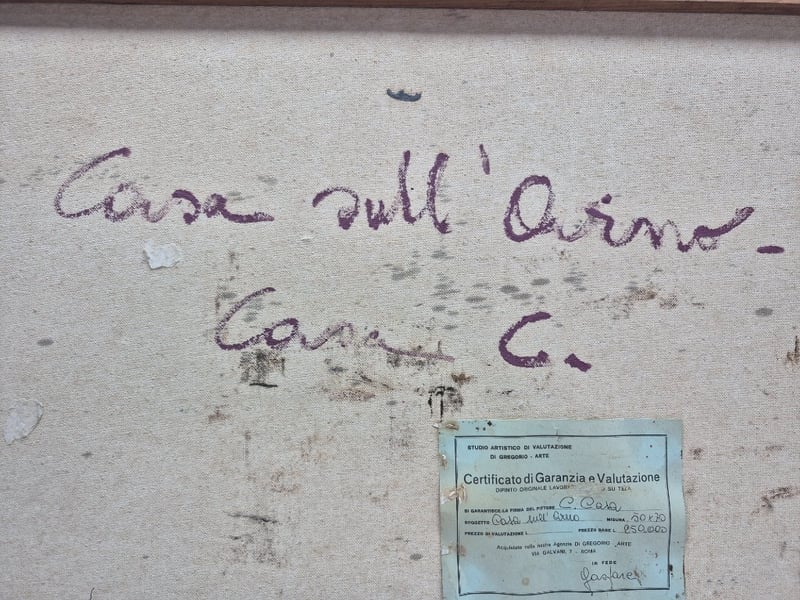 Casa sull'Arno -
Casa C.
STUDIO ARTISTICO DI VALUTAZIONE
DI GREGORIO - ARTE
Certificato di Garanzia e Valutazione
DIPINTO ORIGINALE SU TELA
SI GARANTISCE LA FIRMA DEL PITTORE C. Casa
SOGGETTO Casa sull'Arno MISURA 50x70
PREZZO DI VALUTAZIONE L. PREZZO BASE L. 250.000
Acquistato nella nostra Agenzia DI GREGORIO ARTE
VIA GALVANI, 7 - ROMA
IN FEDE